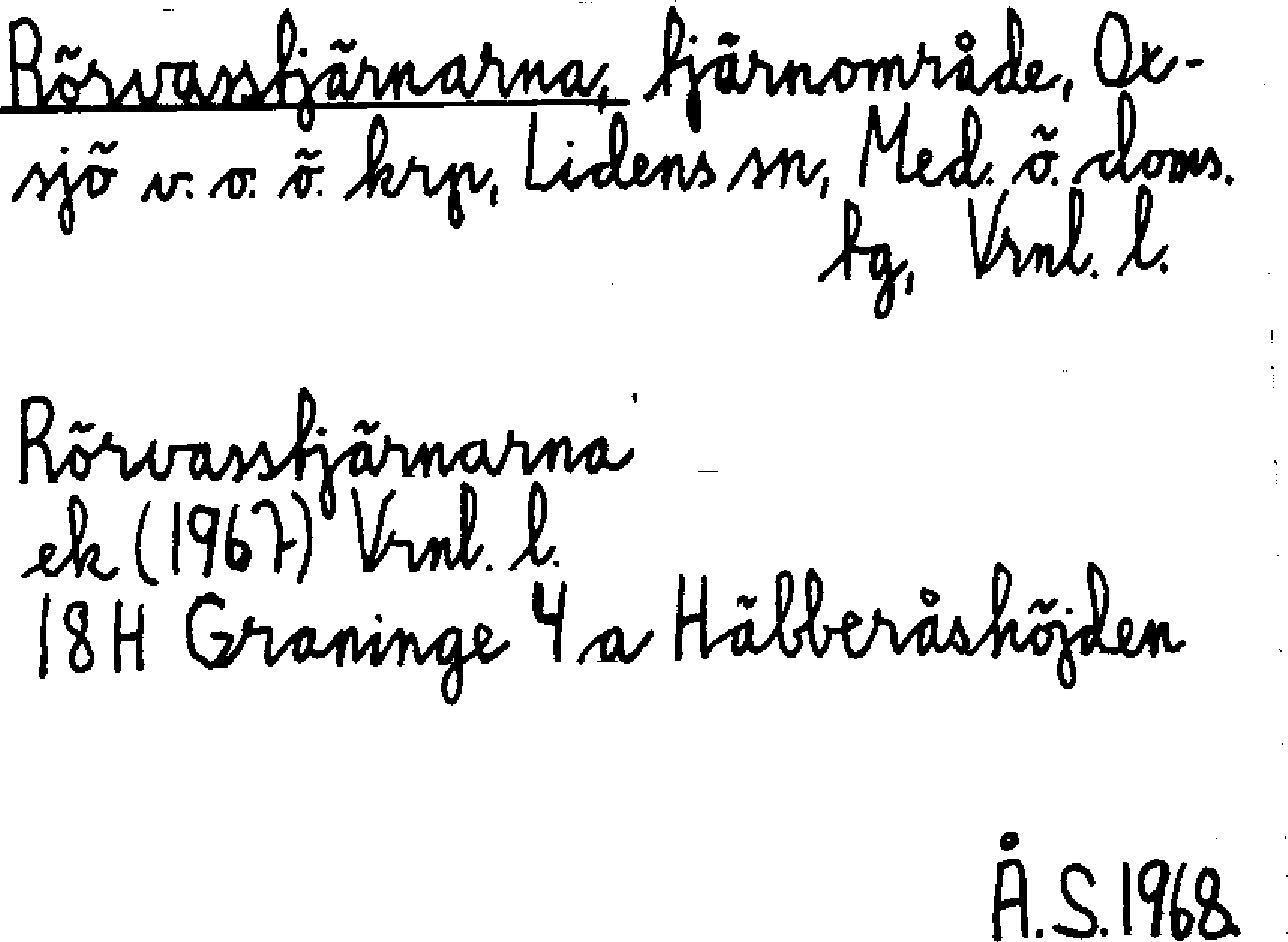 Rörvasstjärnarna, tjärnområde, Ox-
sjö v. o. ö. krp, Lidens sn, Med. ö. doms.
tg, Vrnl. l.
Rörvasstjärnarna
ek (1967) Vrnl. l.
18H Graninge 4 a Häbberåshöjden
Å.S. 1968.